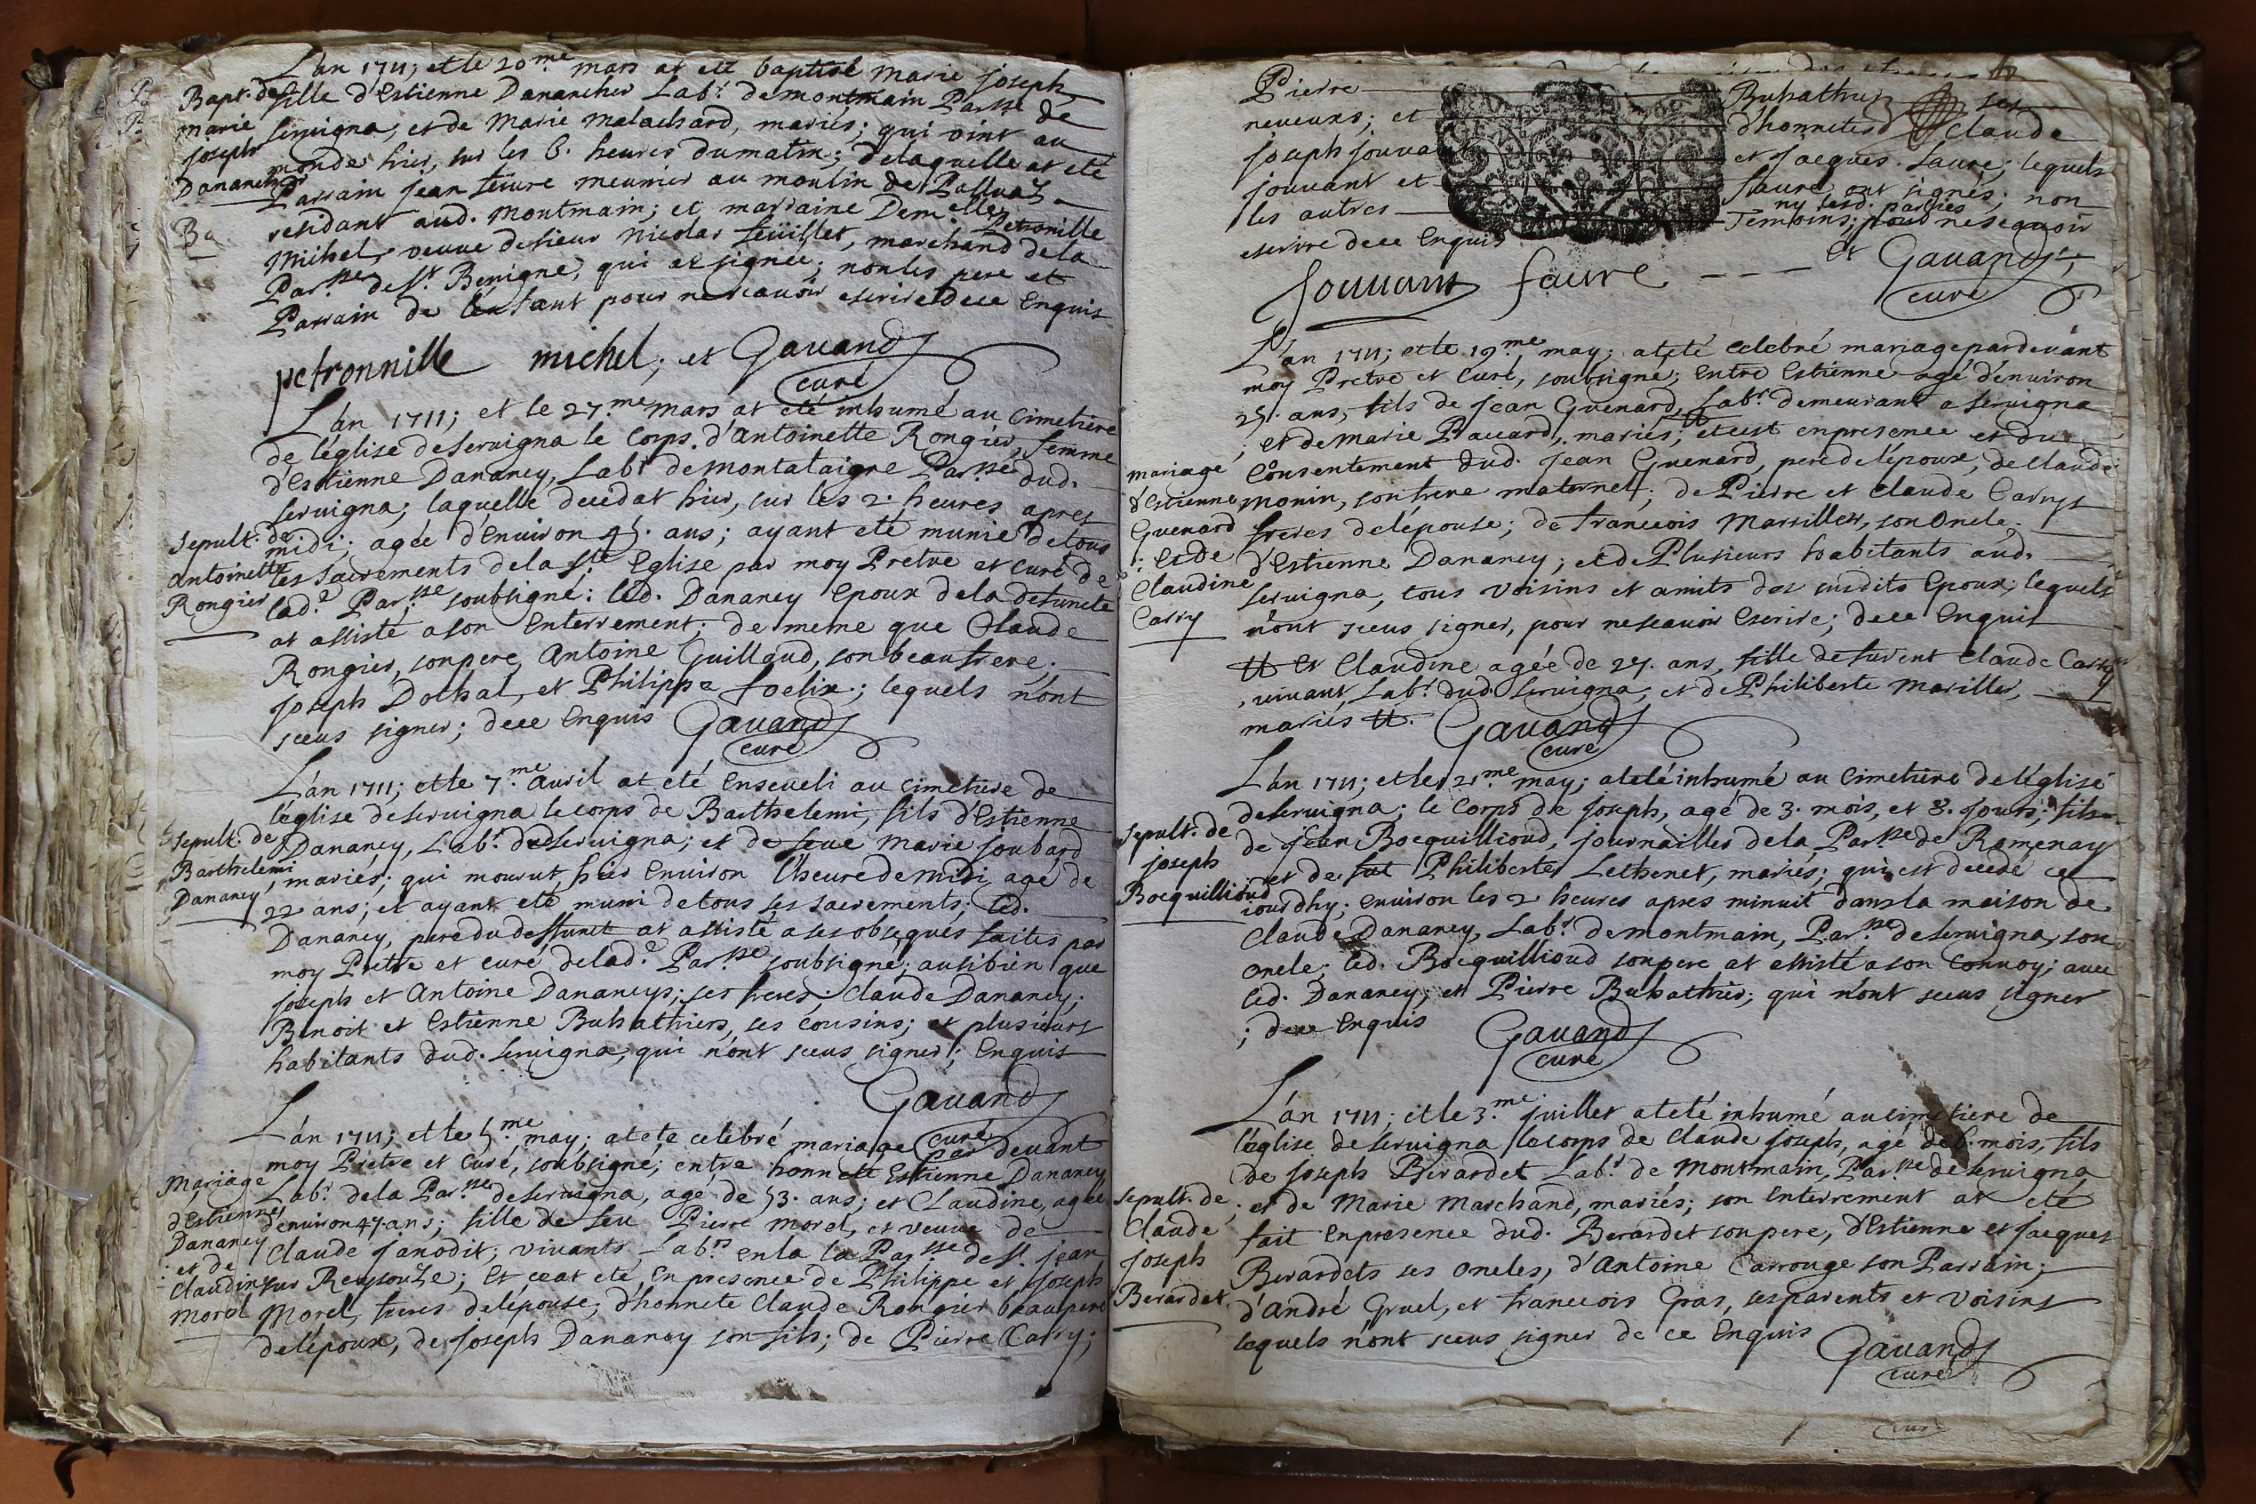 L'an 1711; et le 20.me mars at eté baptisé marie joseph
Bapt. de
marie
joseph
Danancher
fille d'Estienne Danancher Lab.r de montmain Par.sse de
seruigna, et de marie malachard, mariés; qui vint au
monde hier, sur les 6. heures du matin; de laquelle at eté
Parrain jean feüure meunier au moulin de
residant aud. montmain; et marraine Dem.elle Petronille
michel, veuve de sieur nicolas feüillet, marchand de la
Par.sse de St. Benigne, qui at signée; non les pere et
Parrain de l'enfant pour ne scauoir escrire de ce Enquis
petronnille michel; et Gauand
curé
L'an 1711; et le 27.me mars at eté inhumé au Cimetiere
de l'église de seruigna le Corps d'Antoinette Rongier, femme
d'Estienne Dananey, Lab.r de montataigne Par.sse dud.
seruigna; laquelle decedat hier, sur les 2. heures apres
Sepult. de
antoinette
Rongier
midi; agée d'enuiron 45. ans; ayant eté munie de tous
les sacrements de la Ste Eglise par moy Pretre et curé de
lad.e Par.sse soubsigné: led. Dananey Epoux de la defuncte
at assisté a son Enterrement; de meme que Claude
Rongier, son pere, Antoine Guillaud, son beaufrere.
joseph Dothal, et Philippe foelix; lequels n'ont
sceus signer; de ce Enquis Gauand
curé
L'an 1711; et le 7.me auril at eté Enseueli au cimetiere de
l'église de seruigna le corps de Barthelemi, fils d'Estienne
Sepult. de
Barthelemi
Dananey
Dananey, Lab.r de seruigna; et de feue marie joubard
, mariés; qui mourut hier Enuiron l'heure de midi agé de
22 ans; et ayant eté muni de tous ses sacrements; led.
Dananey, pere du deffunct at assisté a ses obseques faites par
moy Pretre et curé de lad.e Par.sse soubsigné; ausi bien que
joseph et Antoine Dananeys; ses freres; Claude Dananey;
Benoit et Estienne Buhathiers, ses cousins; et plusieurs
habitants dud. seruigna, qui n'ont sceus signer; Enquis
Gauand
curé
L'an 1711; et le 5.me may; at eté celebré mariage par deuant
moy Pretre et Curé, soubsigné; entre honnete Estienne Dananey
Mariage
d'Estienne
Dananey
: et de
Claudine
morel
Lab.r de la Par.sse de seruigna, agé de 53. ans; et Claudine, agée
d'enuiron 47. ans; fille de feu Pierre morel, et veuve de
Claude janodit; vivants Lab.rs en la la Par.sse de St. jean
sur Reysouse; Et ce at eté en presence de Philippe et joseph
Morel, freres de l'épouse; d'honnete Claude Rongier beaupere
de l'époux, de joseph Dananey son fils; de Pierre Carry;
Pierre Buhathier ses
neueurs; et d'honnetes Claude
joseph jouuant et jacques faure; lequels
jouuant et faure ont signés; non
les autres ny lesd. parties
Temoins; pour ne scauoir
escrire de ce Enquis et Gauand
Jouuant faure
curé
L'an 1711; et le 19.me may; at eté celebré mariage pardeuant
moy Pretre et Curé, soubsigné; Entre Estienne agé d'enuiron
25. ans, fils de jean Guenard, Lab.r demeurant a seruigna
; et de marie Bauard, mariés; et cest en presence et du
mariage
d'Estienne
Guenard
: et de
Claudine
Carry
Consentement dud. jean Guenard, pere de l'époux, de Claude
monin, son frere maternel; de Pierre et Claude Carrys
freres de l'épouse; de francois Marsiller, son Oncle,
d'Estienne Dananey; et de Plusieurs habitants aud.
seruigna, tous voisins et amits des susdits Epoux; lequels
n'ont sceus signer, pour ne scauoir Escrire; de ce Enquis
# Et Claudine agée de 27. ans, fille de furent Claude Carry
, viuant Lab.r dud. seruigna; et de Philiberte mariller,
mariés #. Gauand
curé
L'an 1711; et le 21.me may; at eté inhumé au Cimetiere de l'église
de seruigna; le Corps de joseph, agé de 3. mois, et 8. jours; fils
Sepult. de
joseph
Bocquillioud
de jean Bocquillioud, journailler de la Par.sse de Romenay
, et de fut Philiberte Lethenet, mariés; qui est decedé ce
iourdhy; enuiron les 2 heures apres minuit dans la maison de
Claude Dananey, Lab.r de montmain, Par.sse de seruigna, son
Oncle; led. Bocquillioud son pere at assisté a son Conuoy; auec
led. Dananey; et Pierre Buhathier; qui n'ont sceus signer
; de ce Enquis Gauand
curé
L'an 1711; et le 3.me juillet at eté inhumé au cimetiere de
l'eglise de seruigna le corps de Claude joseph, agé de 6. mois, fils
de joseph Berardet Lab.r de Montmain, Par.sse de seruigna
Sepult. de
Claude
joseph
Berardet
; et de Marie Marchand, mariés; son Enterrement at eté
fait en presence dud. Berardet son pere, d'Estienne et jacques
Berardets ses Oncles, d'Antoine Carrouge son Parrain;
d'andré Gruel, et francois Gras, ses parents et voisins
lequels n'ont sceus signer de ce Enquis Gauand
curé